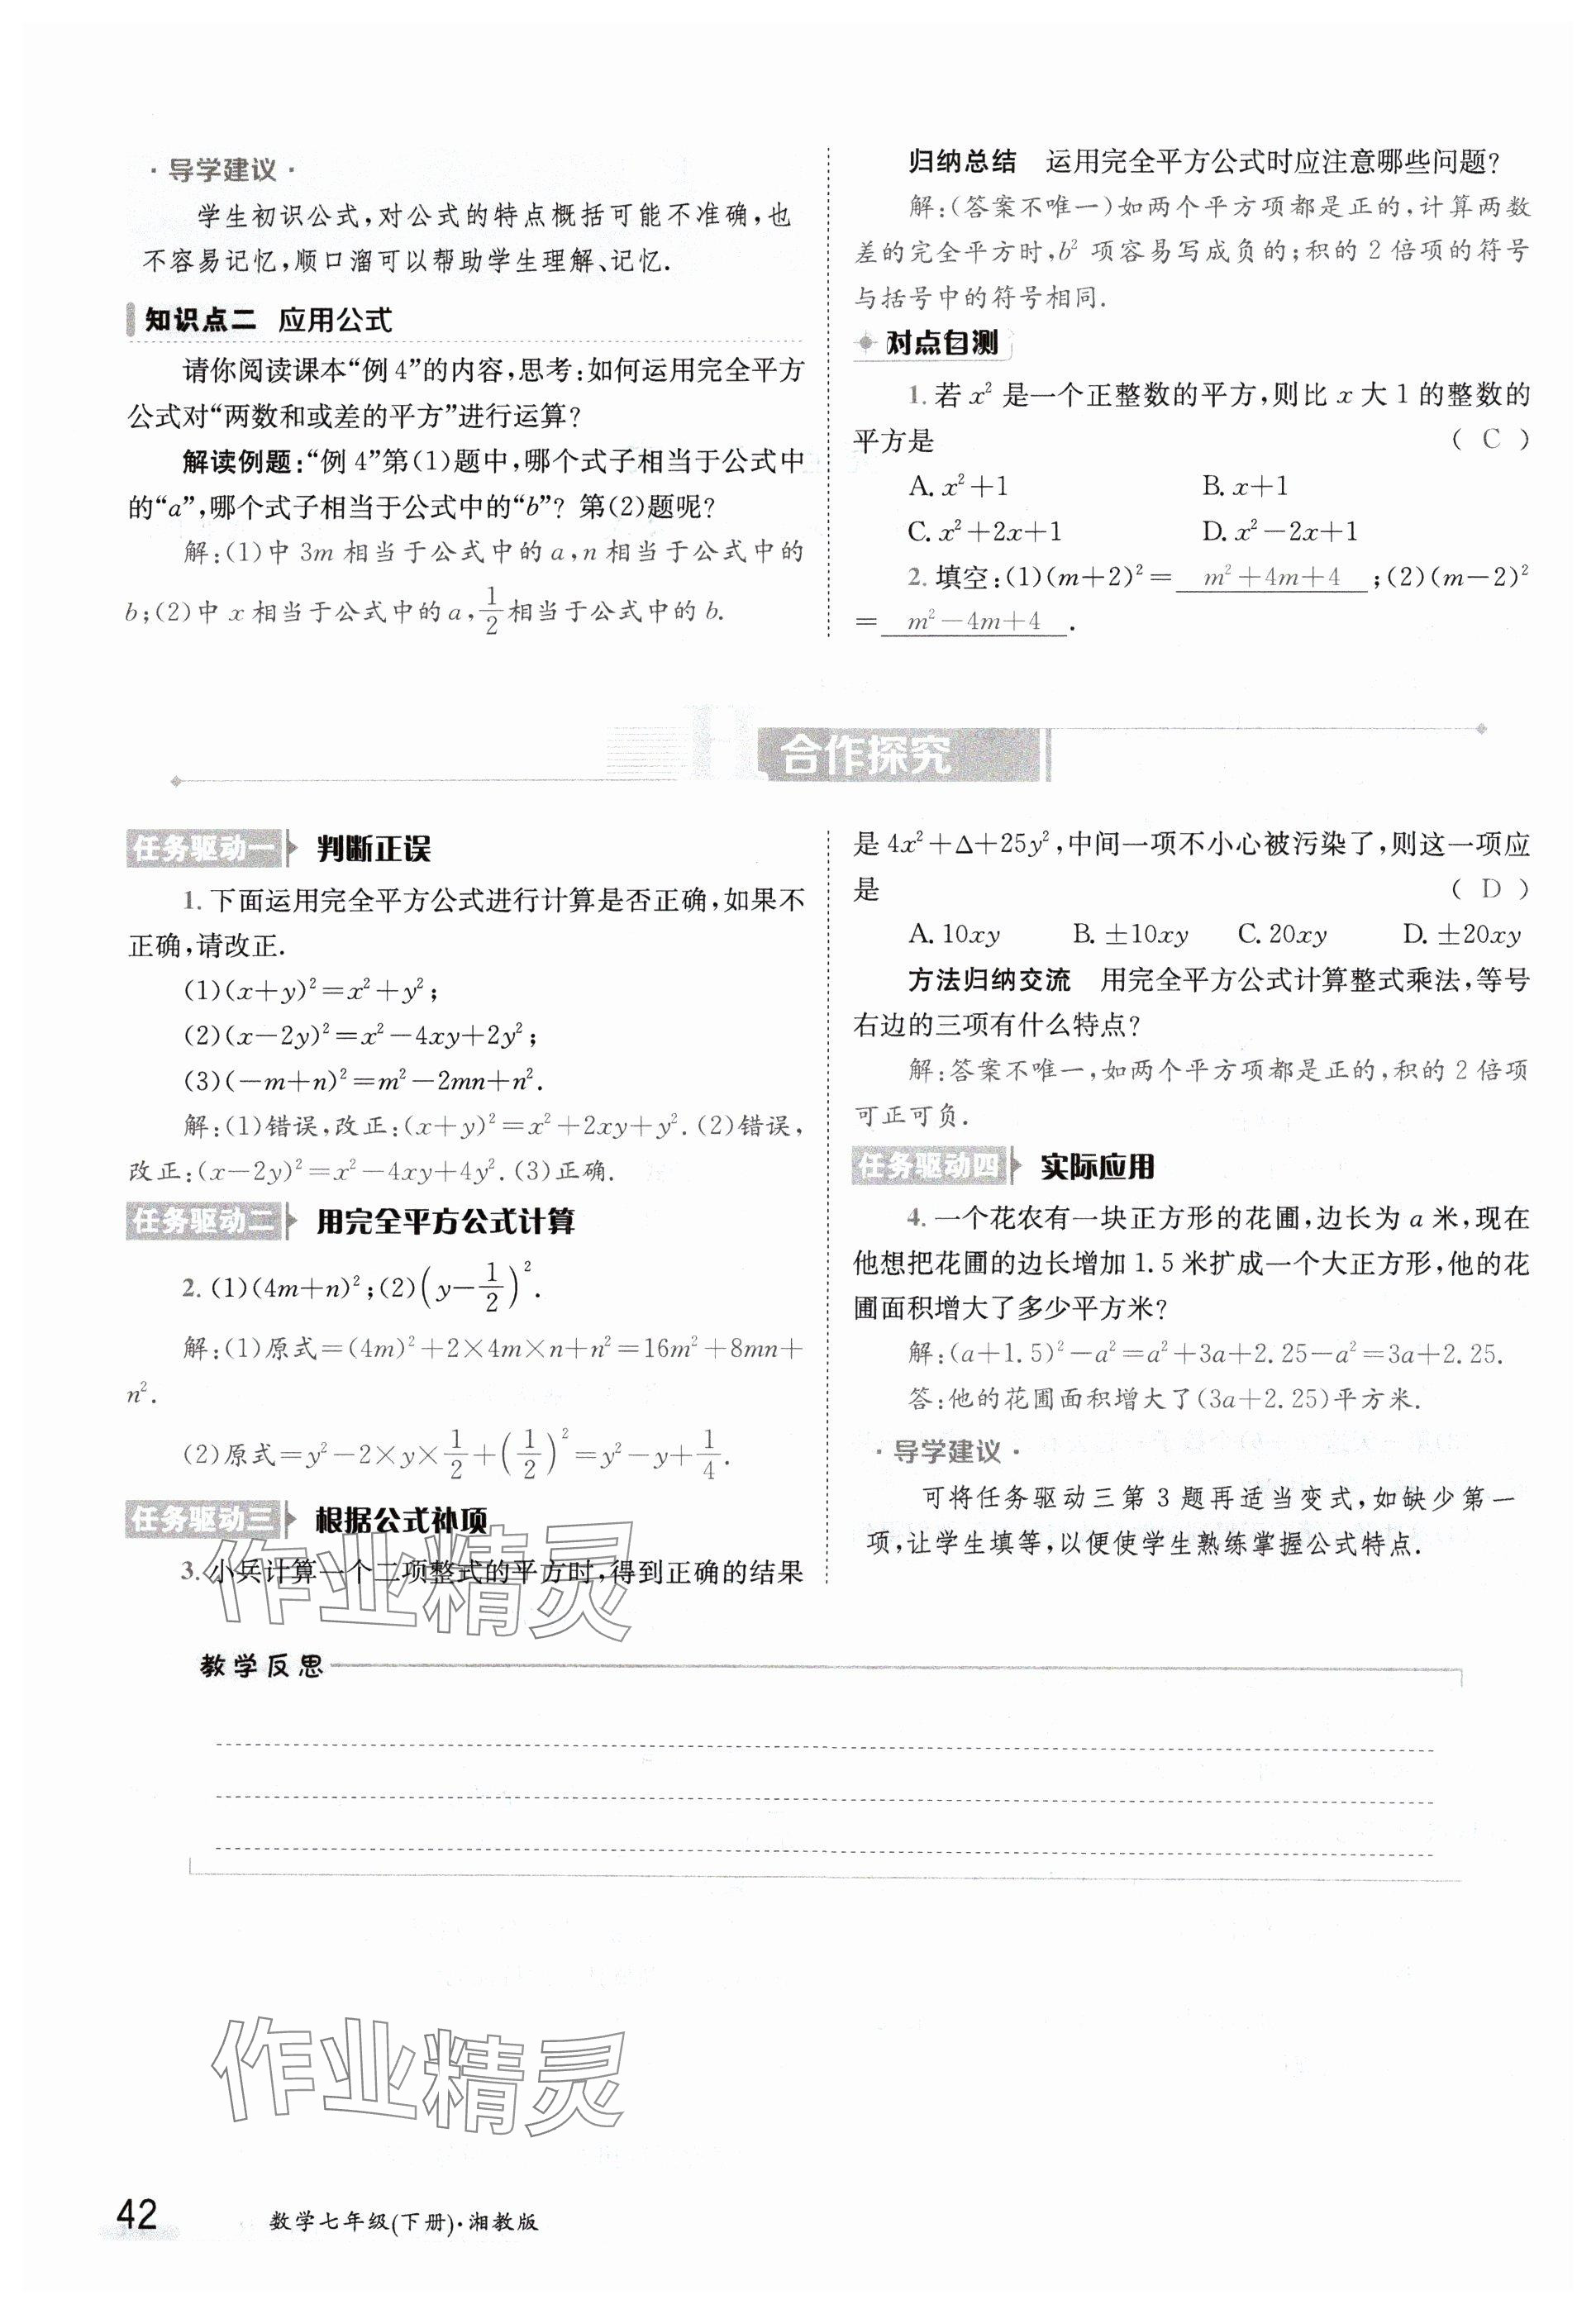 ·导学建议·
学生初识公式,对公式的特点概括可能不准确,也
不容易记忆,顺口溜可以帮助学生理解、记忆.
知识点二 应用公式
请你阅读课本“例4”的内容,思考:如何运用完全平方
公式对“两数和或差的平方”进行运算?
解读例题:“例4”第(1)题中,哪个式子相当于公式中
的“a”,哪个式子相当于公式中的“b”? 第(2)题呢?
解:(1)中 3m 相当于公式中的 a,n 相当于公式中的
b;(2)中 x 相当于公式中的 a,1/2 相当于公式中的 b.
归纳总结 运用完全平方公式时应注意哪些问题?
解:(答案不唯一)如两个平方项都是正的,计算两数
差的完全平方时,b² 项容易写成负的;积的 2 倍项的符号
与括号中的符号相同.
对点自测
1. 若 x² 是一个正整数的平方,则比 x 大 1 的整数的
平方是 ( C )
A. x²+1 B. x+1
C. x²+2x+1 D. x²-2x+1
2. 填空:(1)(m+2)²= m²+4m+4 ;(2)(m-2)²
= m²-4m+4 .
合作探究
任务驱动一 判断正误
1. 下面运用完全平方公式进行计算是否正确,如果不
正确,请改正.
(1)(x+y)²=x²+y²;
(2)(x-2y)²=x²-4xy+2y²;
(3)(-m+n)²=m²-2mn+n².
解:(1)错误,改正:(x+y)²=x²+2xy+y². (2)错误,
改正:(x-2y)²=x²-4xy+4y². (3)正确.
任务驱动二 用完全平方公式计算
2. (1)(4m+n)²;(2)(y-1/2)².
解:(1)原式=(4m)²+2×4m×n+n²=16m²+8mn+
n².
(2)原式=y²-2×y×1/2+(1/2)²=y²-y+1/4.
任务驱动三 根据公式补项
3. 小兵计算一个二项整式的平方时,得到正确的结果
是 4x²+Δ+25y²,中间一项不小心被污染了,则这一项应
是 ( D )
A. 10xy B. ±10xy C. 20xy D. ±20xy
方法归纳交流 用完全平方公式计算整式乘法,等号
右边的三项有什么特点?
解:答案不唯一,如两个平方项都是正的,积的 2 倍项
可正可负.
任务驱动四 实际应用
4. 一个花农有一块正方形的花圃,边长为 a 米,现在
他想把花圃的边长增加 1.5 米扩成一个大正方形,他的花
圃面积增大了多少平方米?
解:(a+1.5)²-a²=a²+3a+2.25-a²=3a+2.25.
答:他的花圃面积增大了(3a+2.25)平方米.
·导学建议·
可将任务驱动三第 3 题再适当变式,如缺少第一
项,让学生填等,以便使学生熟练掌握公式特点.
作业精灵
教学反思
作业精灵
42 数学七年级(下册)·湘教版